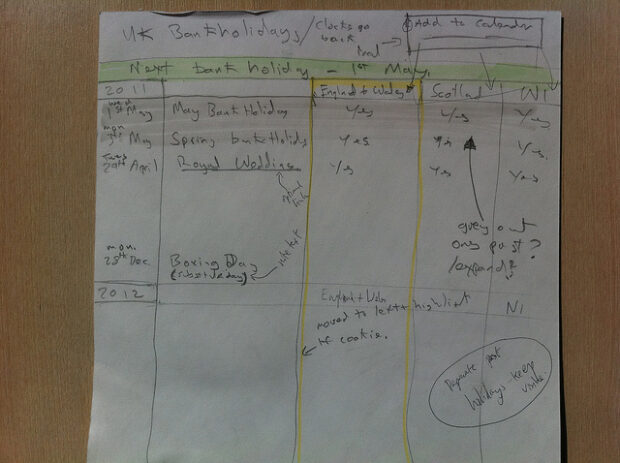 UK Bankholidays/
Clocks go
back
Add to calendar
Next bank holiday - 1st May.
2011
England + Wales
Scotland
NI
1st May May Bank Holiday Yes Yes Yes
mon
May Spring bankholiday Yes Yes Yes.
29th April Royal Wedding Yes Yes Yes
mon.
Dec. Boxing Day
(substitute day)
grey out
ones past?
/expand?
2012
England + Wales
NI
moved to left + highlight
if cookie.
past
holidays - keep
visible.